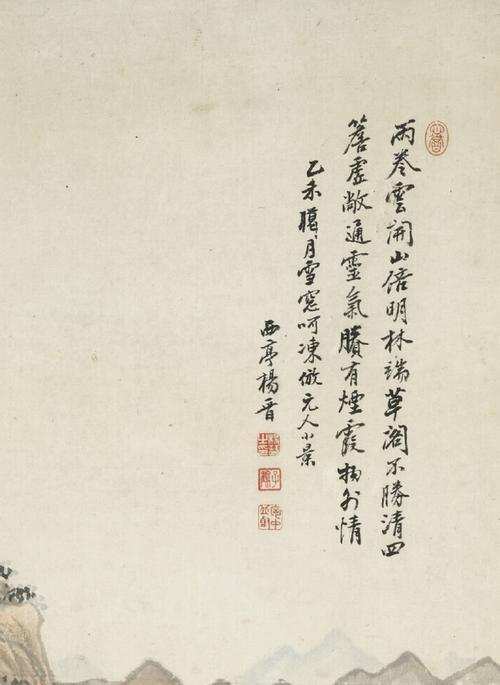 雨卷雲開山倍明林端草閣不勝清四
簷虛敞通靈氣賸有煙霞物外情
乙未臈月雪窓呵凍倣元人小景
西亭楊晋